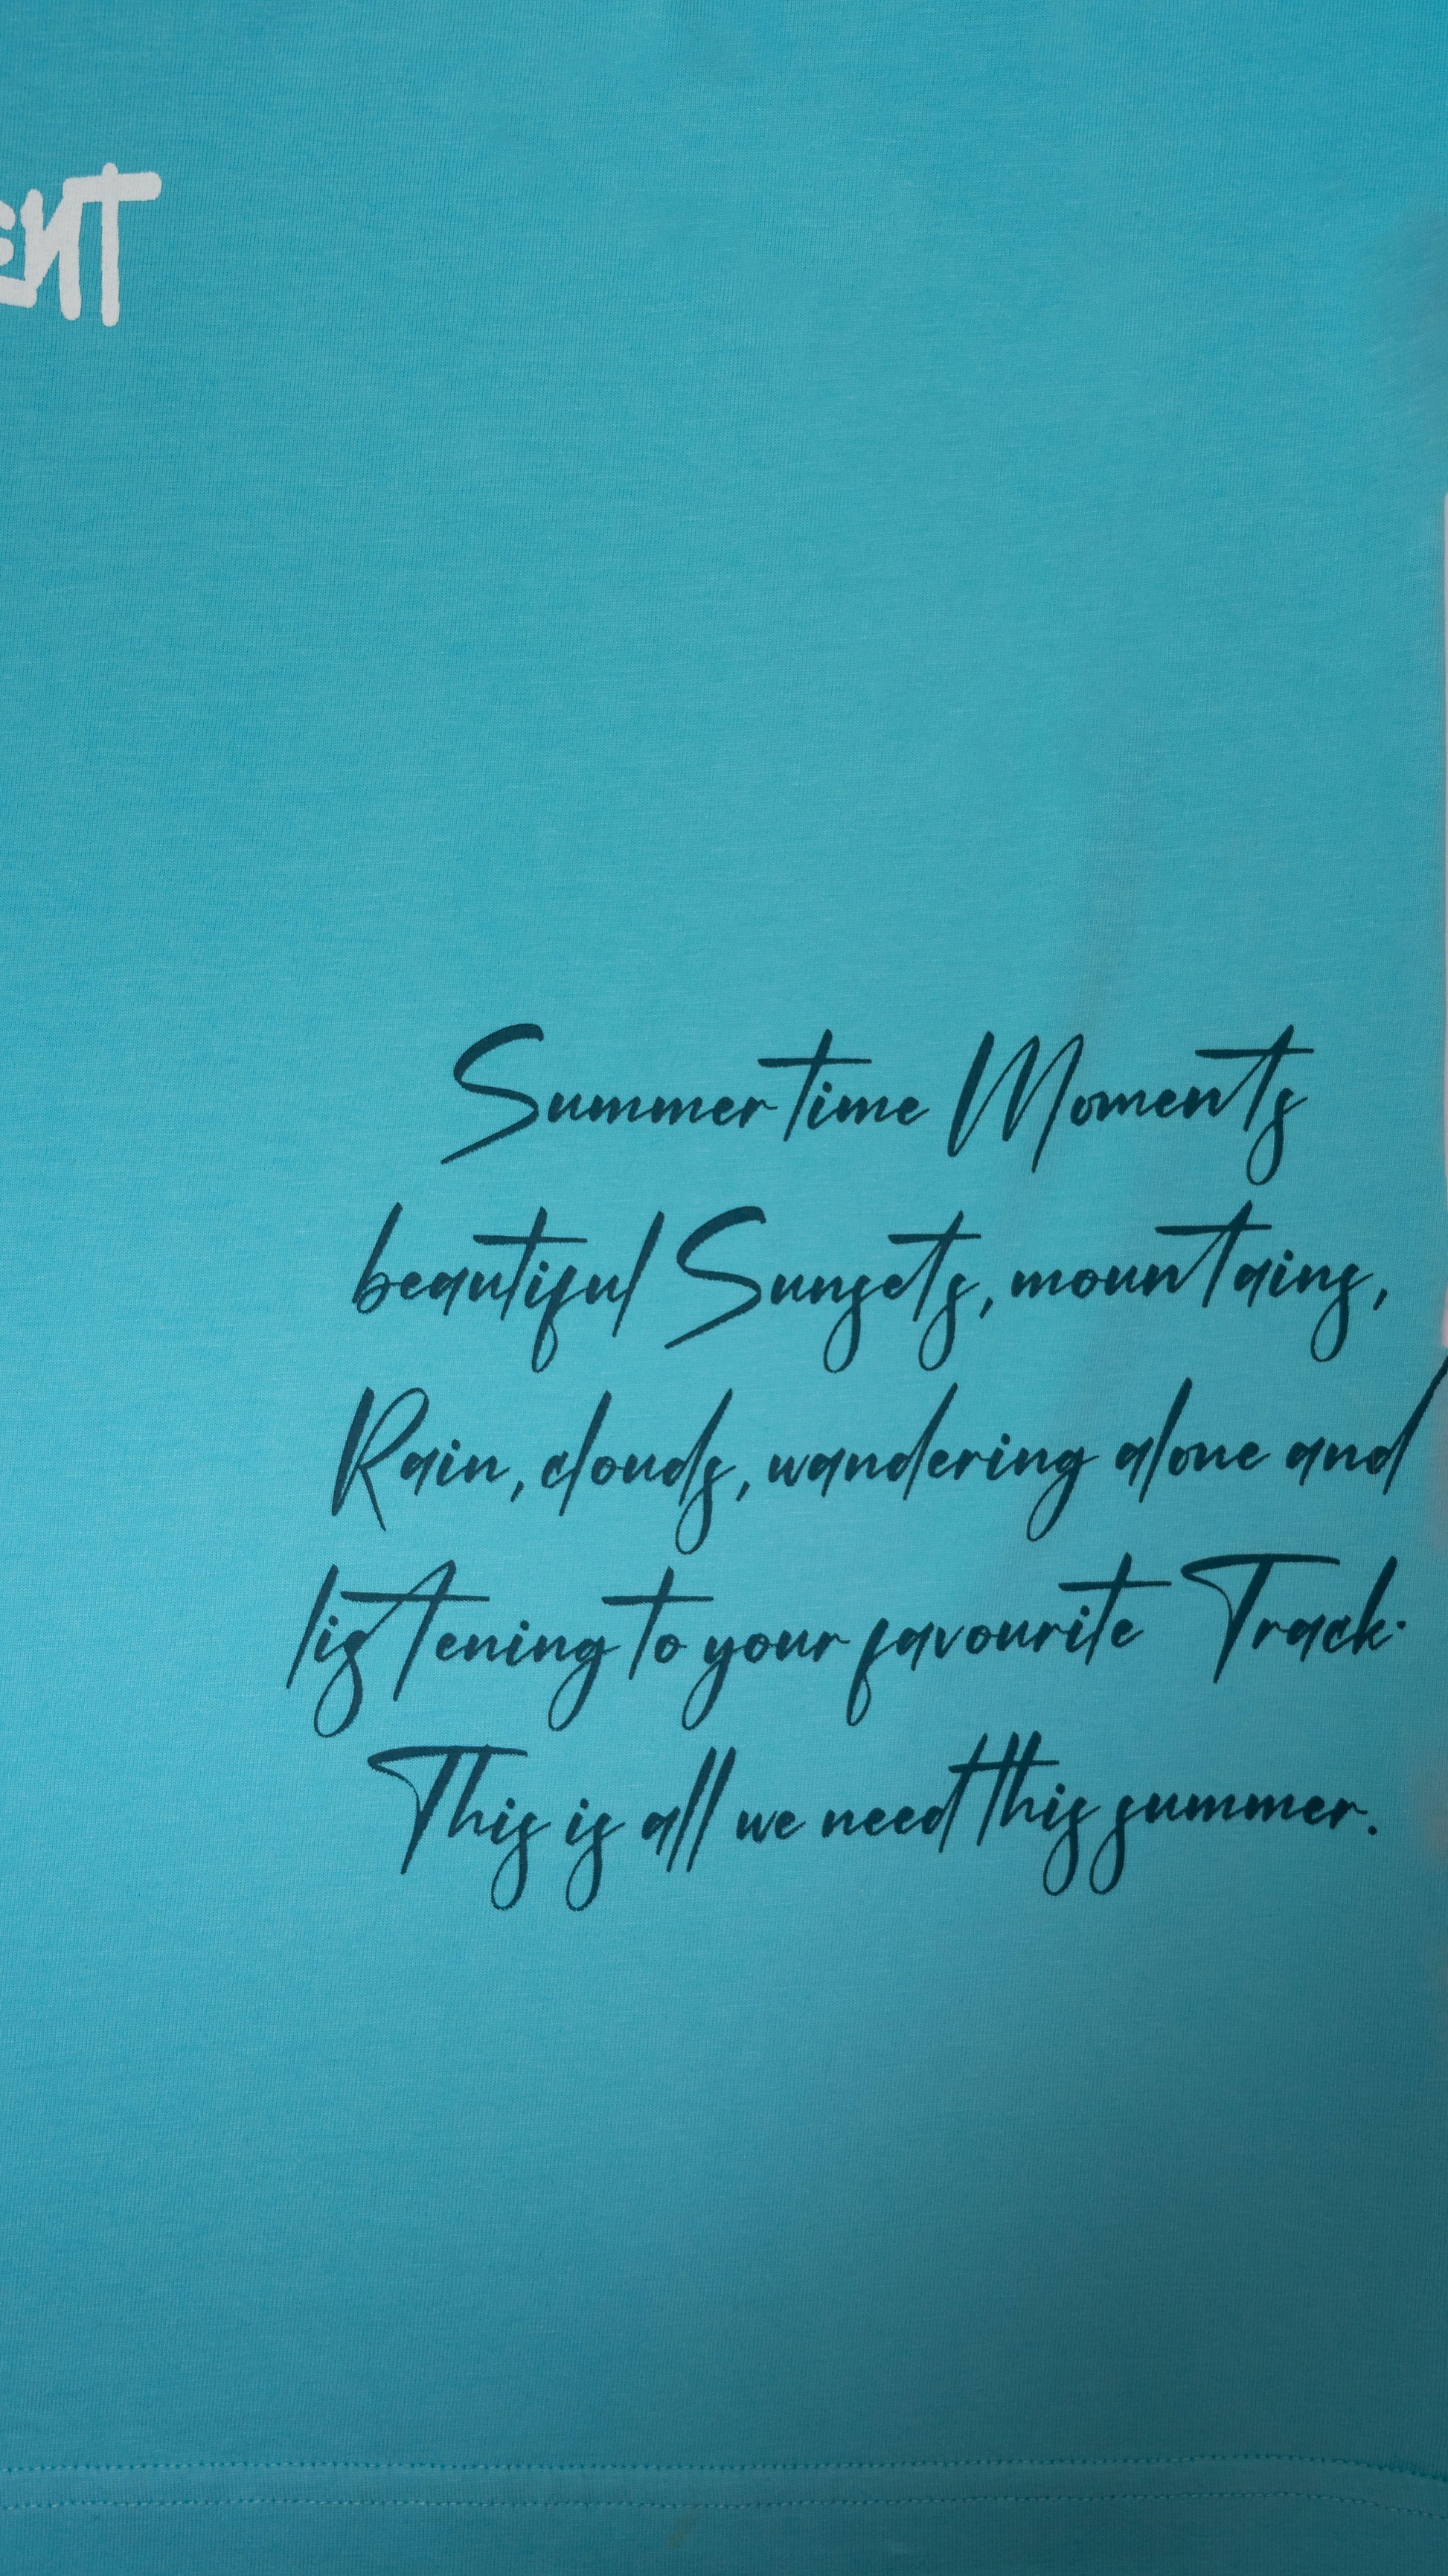 ENT
Summertime Moments
beautiful Sunsets, mountains,
Rain, clouds, wandering alone and
listening to your favourite Track.
This is all we need this summer.